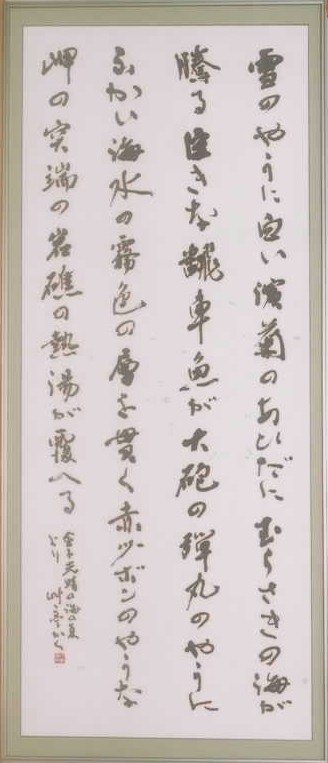 雪のやうに白い濱菊のあひだにむらさきの海が
騰る 巨きな飜車魚が大砲の弾丸のやうに
ふかい海水の霧色の層を貫く 赤ヅボンのやうな
岬の突端の岩礁の熱湯が覆へる
の海の
より かく